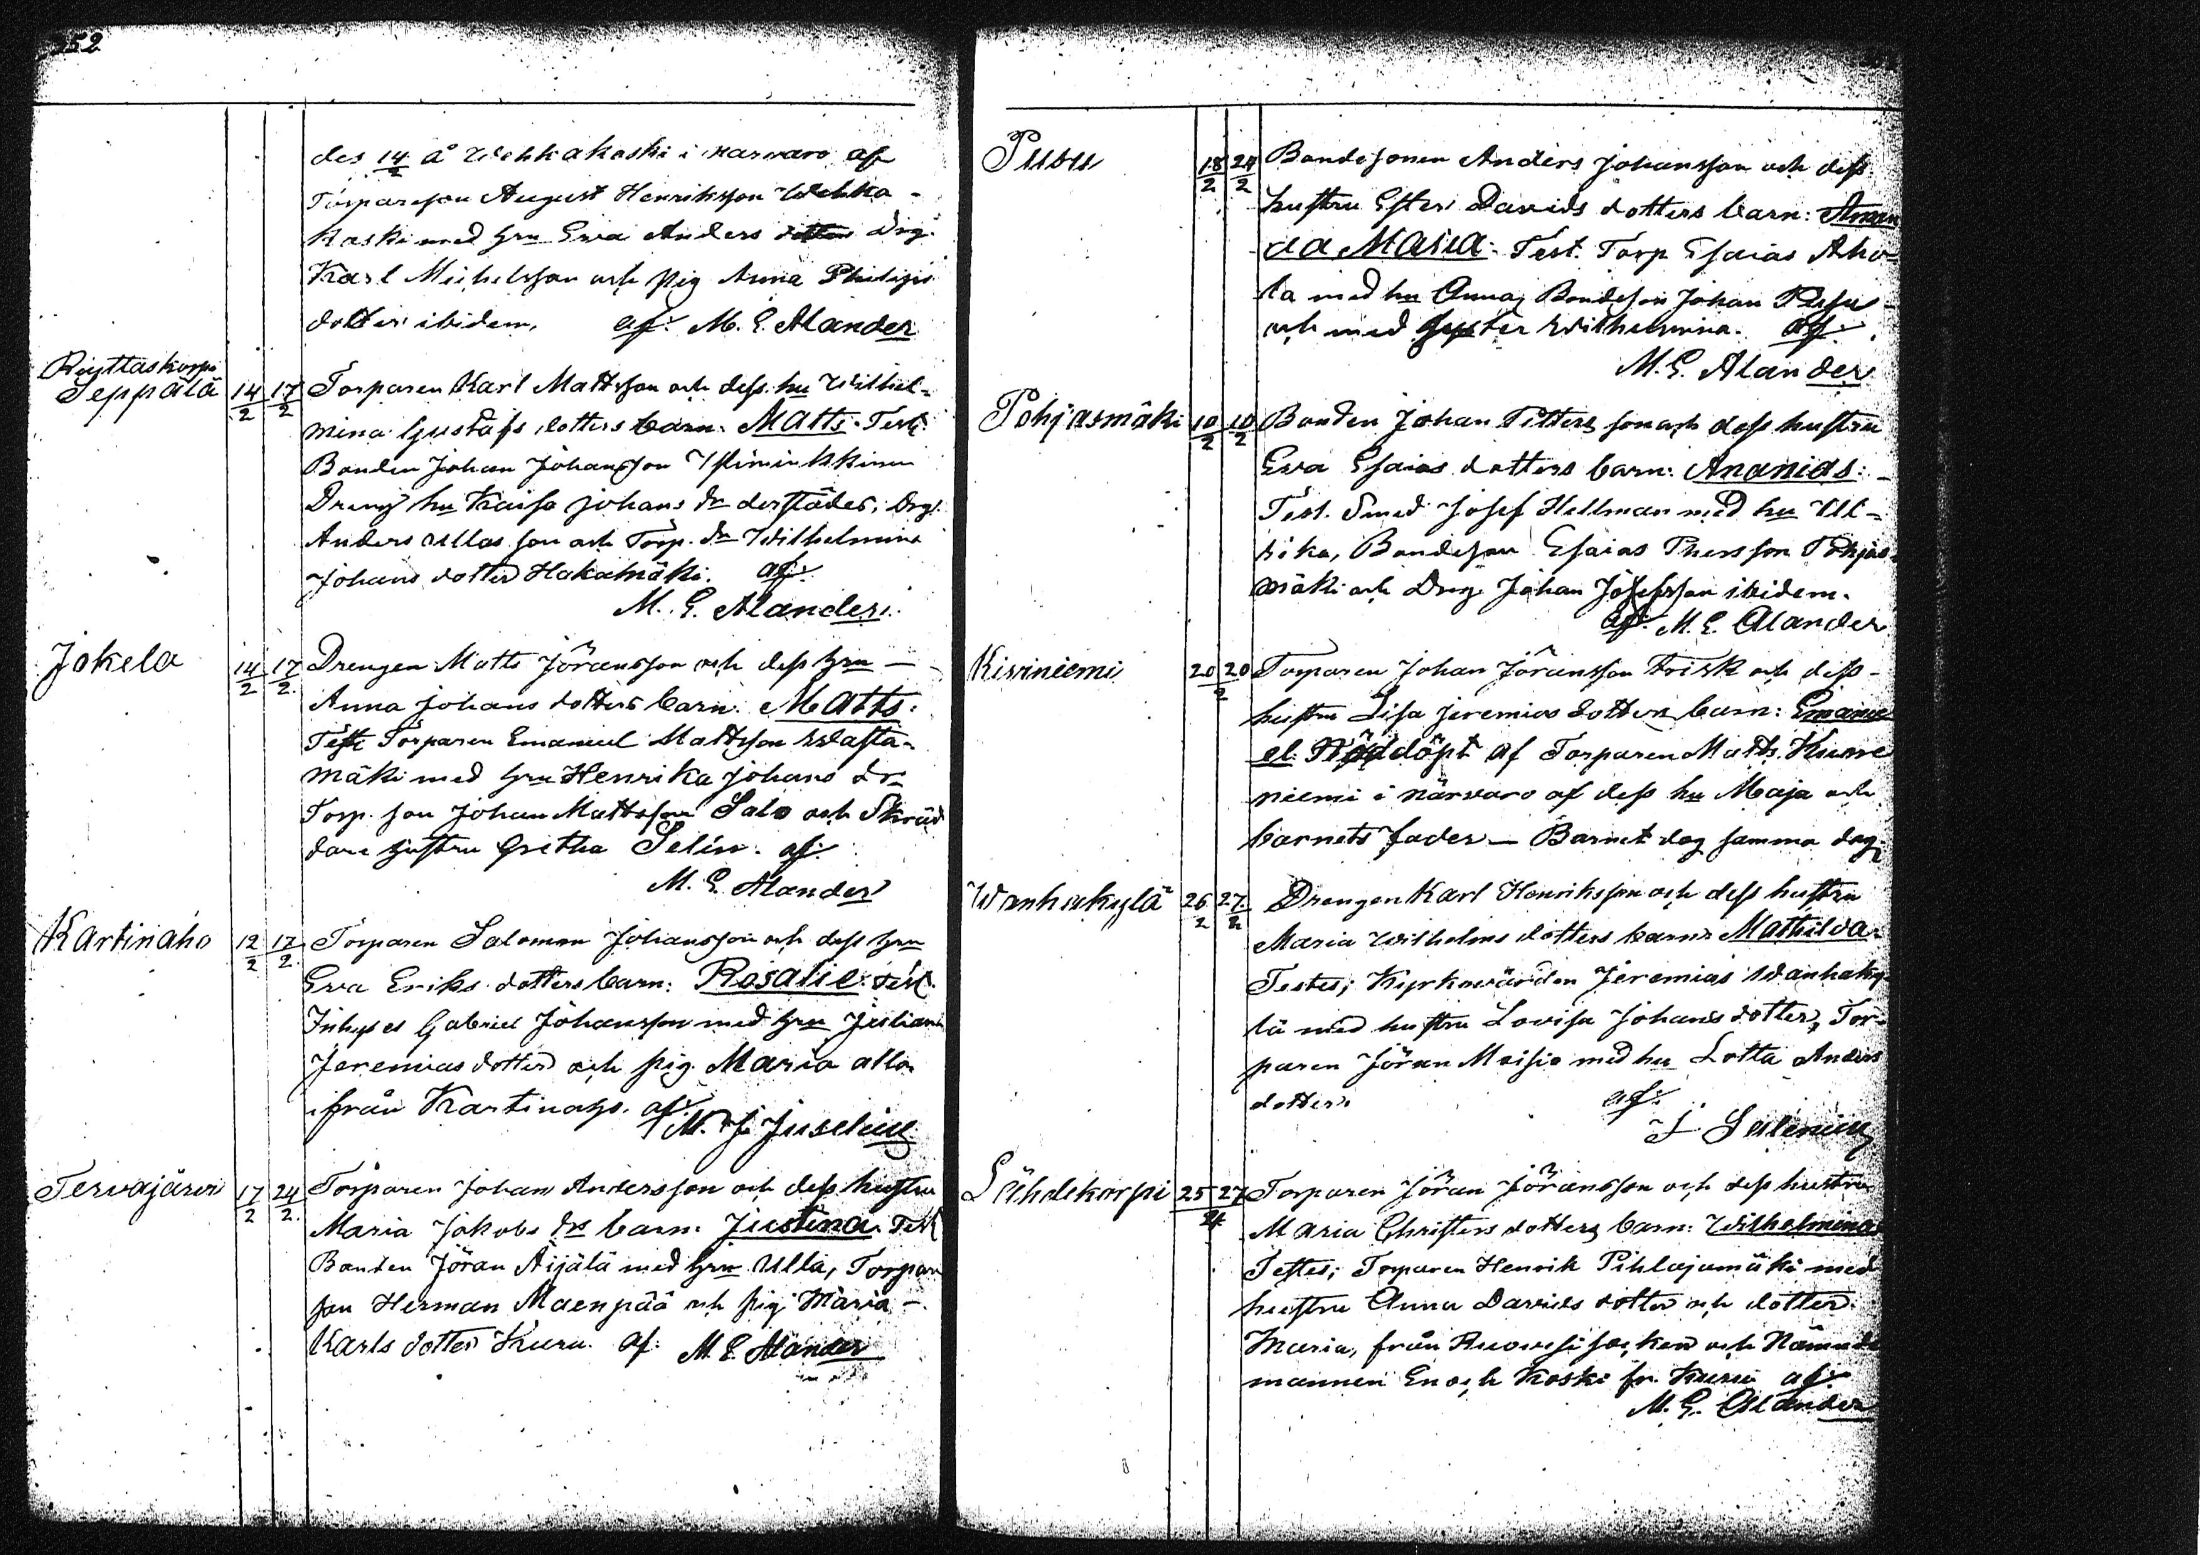 252
des 14/2 å Wehkakoski i narvaro af
Torpareson August Henriksson Wehka-
koski med hru Eva Anders dotter Drg.
Karl Michelsson och pig Anna Philips
dotter ibidem. af: M. E. Alander
Seppälä 14/2 17/2 Torparen Karl Mattsson och dess hu Wilhel-
mina Gustafs dotters barn: Matts. Test.
Bonden Johan Johansson
Dreng hu Kaisa Johans dr derstädes, Drg.
Anders Ullas son och Torp. dr Wilhelmina
Johans dotter Hakamäki. af:
M. E. Alander.
Jokela 14/2 17/2 Drengen Matts Jöransson och dess hru —
Anna Johans dotters barn: Matts.
Test: Torparen Emanuel Mattsson Wasta-
mäki med hru Henrika Johans dr
Torp. son Johan Mattsson Salo och Skräd
dare hustru Gretha Selin. af:
M. E. Alander
Kartinaho 12/2 17/2 Torparen Salomon Johansson och dess hru
Eva Eriks dotters barn: Rosalie. Test.
Inhyses Gabriel Johansson med hru Juliana
Jeremias dotter och pig. Maria alla
ifrån Kartinaho. af:
M. J. Juselius
Tervajärvi 17/2 24/2 Torparen Johan Andersson och dess hustru
Maria Jakobs drs barn: Justina. Test
Bonden Jöran Äijälä med hru Ulla, Torpare
son Herman Maenpää och pig. Maria —
Karls dotter Kuru. af: M. E. Alander
Pusu 18/2 24/2 Bondesonen Anders Johansson och dess
hustru Ester Davids dotters barn: Aman
da Maria. Test. Torp Esaias Aho-
la med hu Anna, Bondeson Johan Pusu
och med syster Wilhelmina. af:
M. E. Alander
Pohjasmäki 10/2 10/2 Bonden Johan Petters son och dess hustru
Eva Esaias dotters barn: Ananias:
Test. Smed Josef Hellman med hu Ul-
rika, Bondeson Esaias Thersson Pohjas-
mäki och Drg. Johan Josefsson ibidem.
af: M. E. Alander
Kiviniemi 20 20/2 Torparen Johan Jöransson Frisk och dess
hustru Lisa Jeremias dotters barn: Emanu
el. Nöddöpt af Torparen Matts
niemi i närvaro af dess hu Maja och
barnets fader — Barnet dog samma dag.
Wanhakylä 26/2 27/2 Drengen Karl Henriksson och dess hustru
Maria Wilhelms dotters barn: Mathilda.
Testes; Kyrkowärden Jeremias Wanhaky-
lä med hustru Lovisa Johans dotter, Tor-
paren Jöran Moisio med hu Lotta Anders
dotter. af:
Lähdekorpi 25 27/2 Torparen Jöran Jöransson och dess hustru
Maria Christers dotters barn: Wilhelmina
Testes; Torparen Henrik Pihlajamäki med
hustru Anna Davids dotter och dotter
Maria, från Ruovesi socken och Nämnde
mannen Enoch Koski fr. Kuru af:
M. E. Alander